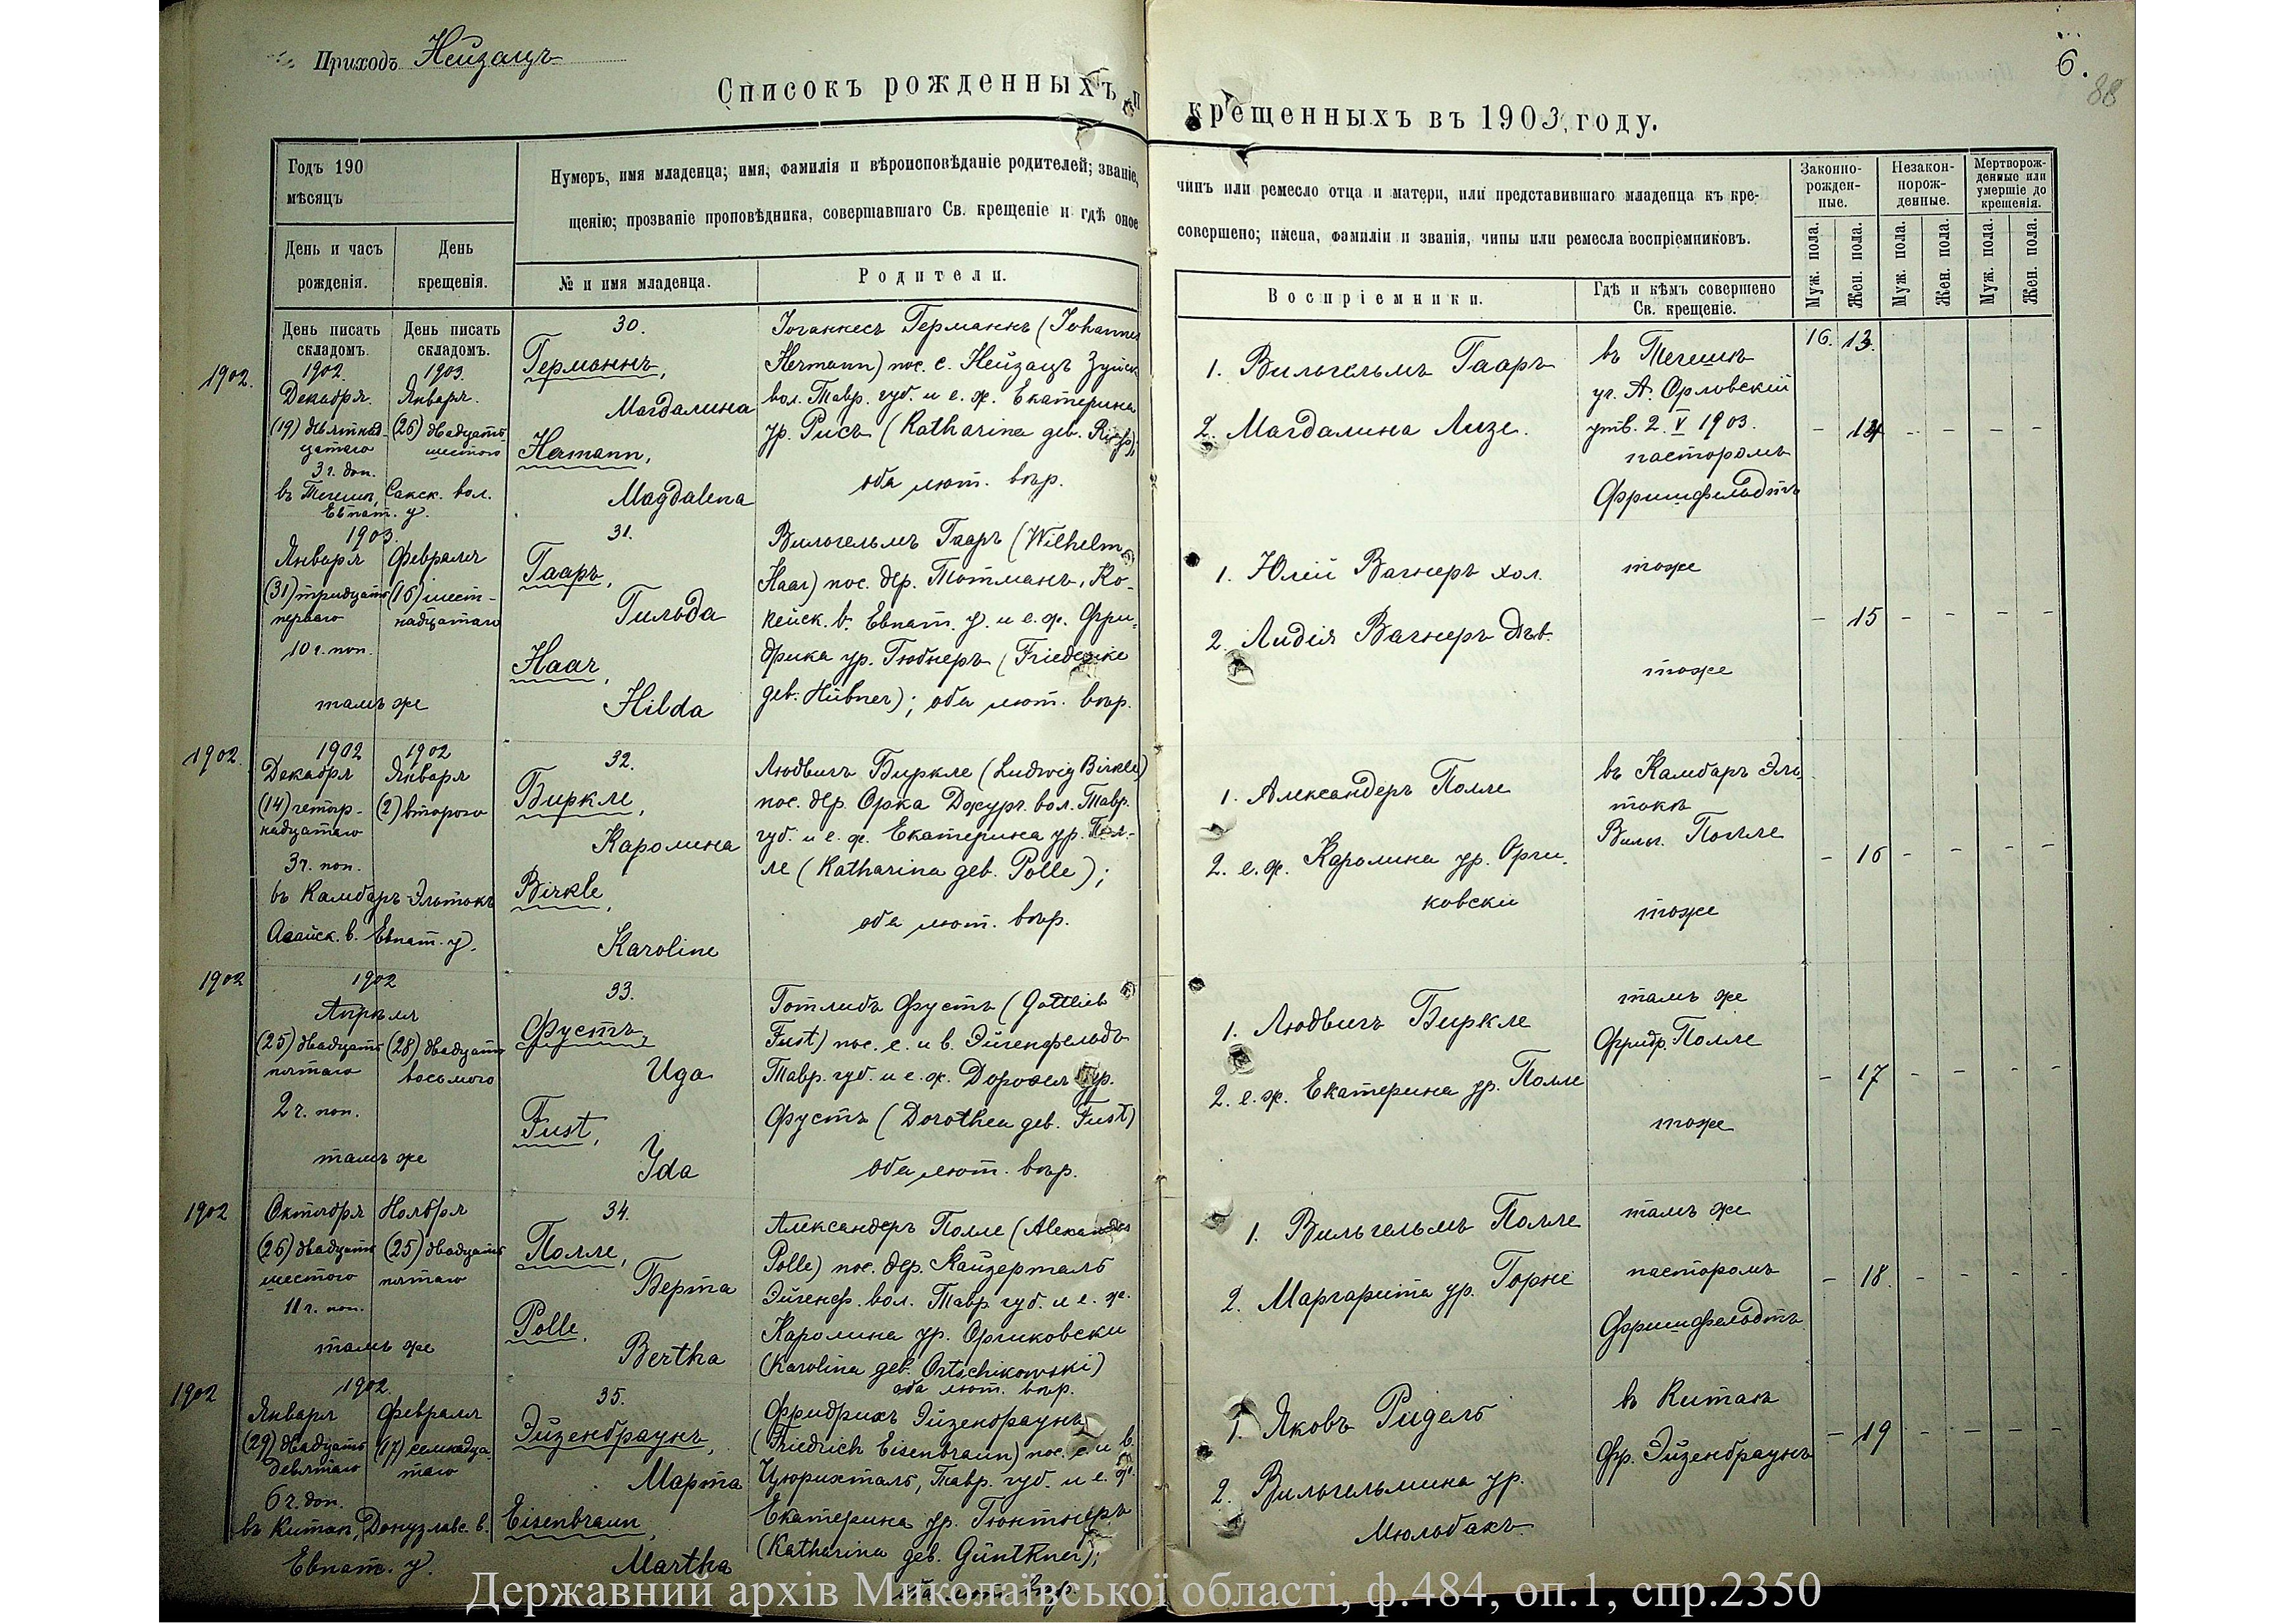 Приходъ Нейзацъ
6.
88
Списокъ рожденныхъ и крещенныхъ въ 1903 году.
Годъ 190
мѣсяцъ
День и часъ рожденія.
День крещенія.
Нумеръ, имя младенца; имя, фамилія и вѣроисповѣданіе родителей; званіе, чинъ или ремесло отца и матери, или представившаго младенца къ кре-
щенію; прозваніе проповѣдника, совершавшаго Св. крещеніе и гдѣ оное совершено; имена, фамиліи и званія, чины или ремесла воспріемниковъ.
№ и имя младенца.
Родители.
Воспріемники.
Гдѣ и кѣмъ совершено Св. крещеніе.
Законно-рожден-ные.
Незакон-норож-денные.
Мертворож-денные или умершіе до крещенія.
Муж. пола.
Жен. пола.
Муж. пола.
Жен. пола.
Муж. пола.
Жен. пола.
День писать складомъ.
День писать складомъ.
1902.
1902.
Декабря
(19) девятнад-
цатаго
3 ч. доп.
въ Тегешъ, Сакск. вол.
Евпат. у.
1903.
Января.
(26) двадцать
шестого
30.
Германнъ,
Магдалина
Hermann,
Magdalena
Іоганнесъ Германнъ (Johannes
Hermann) пос. с. Нейзацъ Зуйск.
вол. Тавр. губ. и е. ж. Екатерина
ур. Рисъ (Katharina geb. Riess);
оба лют. вѣр.
1. Вильгельмъ Гааръ
2. Магдалина Лизе.
въ Тегешъ
уч. А. Орловскій
утв. 2. V 1903.
пасторомъ
Фришфельдтъ
16. 13.
- 14 - - - -
1903.
Января
(31) тридцать
перваго
10 ч. поп.
тамъ же
Февраля
(16) шест-
надцатаго
31.
Гааръ,
Гильда
Haar,
Hilda
Вильгельмъ Гааръ (Wilhelm
Haar) пос. дер. Тотманъ, Ко-
кейск. в. Евпат. у. и е. ж. Фри-
дрика ур. Гюбнеръ (Friederike
geb. Hübner); оба лют. вѣр.
1. Юлій Вагнеръ хол.
2. Лидія Вагнеръ дѣв.
тоже
тоже
- 15 - - - -
1902.
1902
Декабря
(14) четыр-
надцатаго
3 ч. поп.
въ Камбаръ-Эльтокъ
Агайск. в. Евпат. у.
1902
Января
(2) второго
32.
Биркле,
Каролина
Birkle,
Karoline
Людвигъ Биркле (Ludwig Birkle)
пос. дер. Орка Джург. вол. Тавр.
губ. и е. ж. Екатерина ур. Пол-
ле (Katharina geb. Polle);
оба лют. вѣр.
1. Александеръ Полле
2. е. ж. Каролина ур. Орчи-
ковски
въ Камбаръ Эль
токъ
Вильг. Полле
тоже
- 16 - - - -
1902
1902
Апрѣля
(25) двадцать
пятаго
2 ч. поп.
тамъ же
(28) двадцать
восьмого
33.
Фустъ,
Ида
Fust,
Ida
Готлибъ Фустъ (Gottlieb
Fust) пос. с. и в. Эйгенфельдъ
Тавр. губ. и е. ж. Доротея ур.
Фустъ (Dorothea geb. Fust)
оба лют. вѣр.
1. Людвигъ Биркле
2. е. ж. Екатерина ур. Полле
тамъ же
Фридр. Полле
тоже
- 17 - - - -
1902
Октября
(26) двадцать
шестого
11 ч. поп.
тамъ же
Ноября
(25) двадцать
пятаго
34.
Полле,
Берта
Polle,
Bertha
Александеръ Полле (Alexander
Polle) пос. дер. Кайзерталь
Эйгенф. вол. Тавр. губ. и е. ж.
Каролина ур. Орчиковски
(Karolina geb. Ortschikowski)
оба лют. вѣр.
1. Вильгельмъ Полле
2. Маргарита ур. Горне
тамъ же
пасторомъ
Фришфельдтъ
- 18. - - - -
1902
1902.
Января
(29) двадцать
девятаго
6 ч. доп.
въ Китай, Донузлавс. в.
Евпат. у.
Февраля
(17) семнадца-
таго
35.
Эйзенбраунъ,
Марта
Eisenbraun,
Martha
Фридрихъ Эйзенбраунъ
(Friedrich Eisenbraun) пос. с. и в.
Цюрихталь, Тавр. губ. и е. ж.
Екатерина ур. Гюнтнеръ
(Katharina geb. Günthner);
оба лют. вѣр.
1. Яковъ Ридель
2. Вильгельмина ур.
Мюльбахъ
въ Китаѣ
Фр. Эйзенбраунъ
- 19 - - - -
Державний архів Миколаївської області, ф.484, оп.1, спр.2350